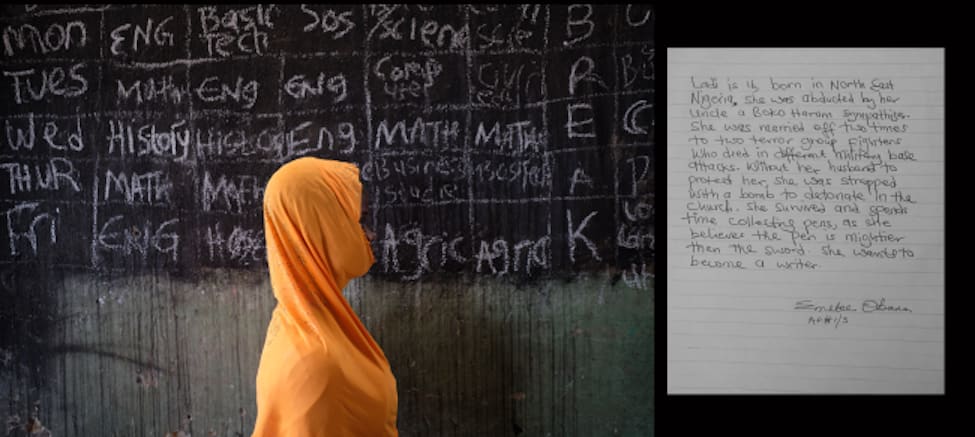 Mon ENG Basic Tech SOS Science B
TUES MATH ENG ENG Comp R
Wed History ENG MATH MATH E C
THUR MATH MATH A
Fri ENG Agric Agric K
Ladi is 16, born in North East
Nigeria, she was abducted by her
Uncle a Boko Haram sympathiser.
She was married off two times
to two terror group fighters
who died in different military base
attacks. Without her husband to
protect her, she was strapped
with a bomb to detonate in the
Church. She survived and spends
time collecting pens, as she
believes the pen is mightier
than the sword. She wants to
become a writer.